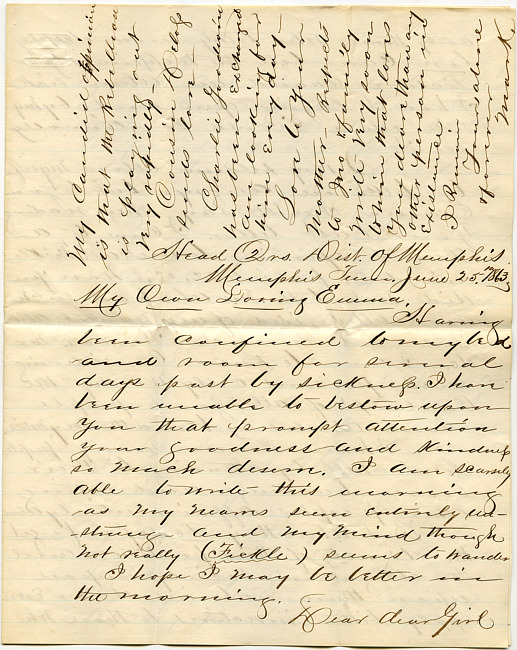 Head Qrs. Dist. Of Memphis.
Memphis Tenn, June 25, 1863,
My Own Loving Emma,
Having
been confined to my bed
and room for several
days past by sickness. I have
been unable to bestow upon
you that prompt attention
your goodness and kindness
so much deserve. I am scarsely
able to write this morning
as my nerves seem entirely un-
strung and my mind though
not really (Fickle) seems to wander
I hope I may be better in
the morning.
Dear dear Girl
My Candid opinion
is that the Rebellion
is playing out
very rapidly-
Cousin
sends love-
Charlie Goodwin
has been exchanged
am looking for
him Evry day-
Love to Your
Mother- Respects
to Mo family
Write Very soon
to him that loves
you dearer than any
other person in
Existance
I Remain
Yours alone
forever
Mark